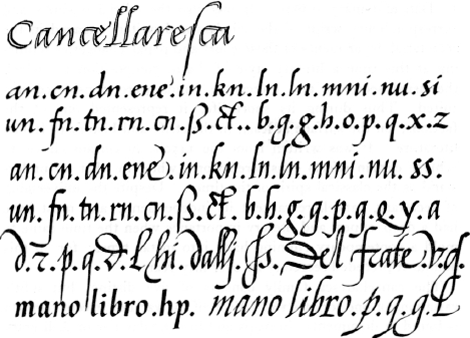 Cancellaresca
an. cn. dn. ene. in. kn. ln. ln. mni. nu. si
un. fn. tn. rn. cn. ß. ct.. b. g. g. h. o. p. q. x. z
an. cn. dn. ene. in. kn. ln. ln. mni. nu. ss.
un. fn. tn. rn. cn. ß. ct. b. h. g. g. p. q. e. y. a
d. r. p. q. d. l hi. dalli. ss. Del frate.
mano libro. hp. mano libro. p. q. g. l